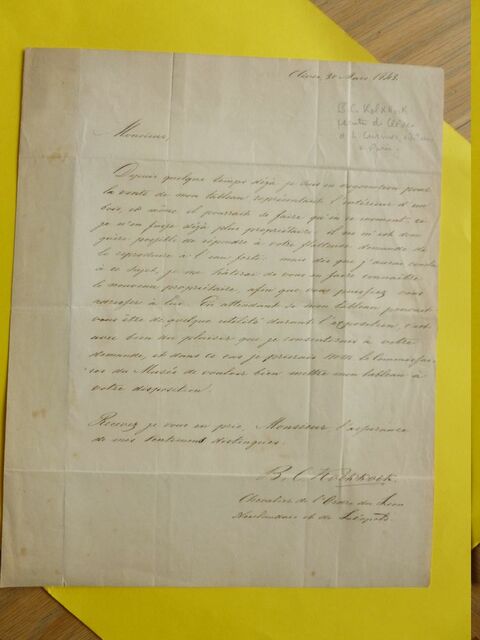 Clèves 30 Mars 1843.
B. C. Koekkoek
Monsieur,
Depuis quelque temps déjà je suis en négociation pour
la vente de mon tableau représentant l'intérieur d'un
bois, et même il pourrait se faire qu'en ce moment ce
je n'en fusse déjà plus propriétaire il ne m'est donc
guère possible de répondre à votre flatteuse demande de
le reproduire à l'eau forte: mais dès que j'aurai
à ce sujet, je me hâterai de vous en faire connaître
le nouveau propriétaire, afin que vous puissiez vous
adresser à lui. En attendant si mon tableau pouvait
vous être de quelque utilité durant l'exposition, c'est
avec bien du plaisir que je consentirais à votre
demande, et dans ce cas je prierais
du Musée de vouloir bien mettre mon tableau à
votre disposition.
Recevez je vous en prie, Monsieur l'assurance
de mes sentiments distingués.
B. C. Koekkoek.
Chevalier de l'Ordre du Lion
Néerlandais et de Léopold.